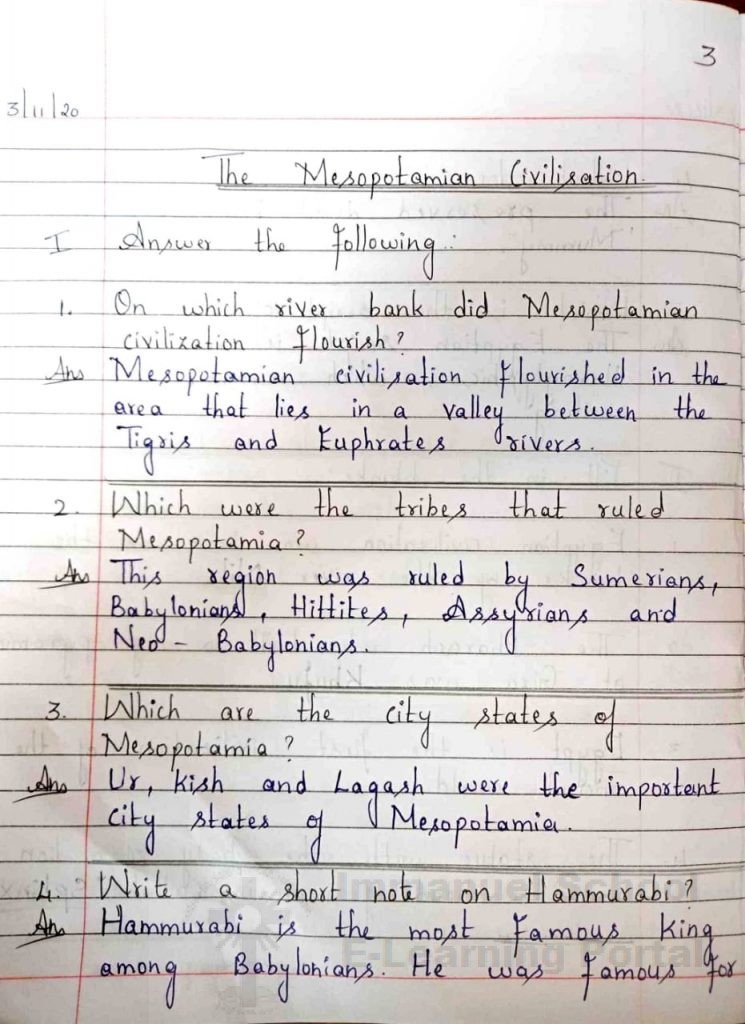 3
3/11/20
The Mesopotamian Civilisation.
I Answer the following:
1. On which river bank did Mesopotamian
civilization flourish?
Ans Mesopotamian civilisation flourished in the
area that lies in a valley between the
Tigris and Euphrates rivers.
2. Which were the tribes that ruled
Mesopotamia?
Ans This region was ruled by Sumerians,
Babylonians, Hittites, Assyrians and
Neo - Babylonians.
3. Which are the city states of
Mesopotamia?
Ans Ur, Kish and Lagash were the important
city states of Mesopotamia.
4. Write a short note on Hammurabi?
Ans Hammurabi is the most famous King
among Babylonians. He was famous for
Immanuel School
E-Learning Portal